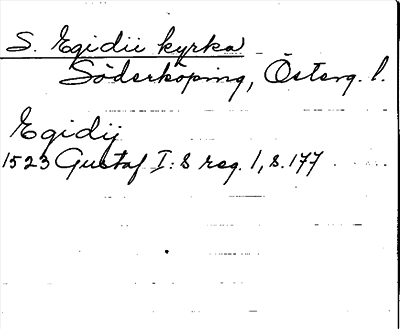 S. Egidii kyrka
Söderköping, Österg. l.
Egidij
1523 Gustaf I:s reg. 1, s. 177